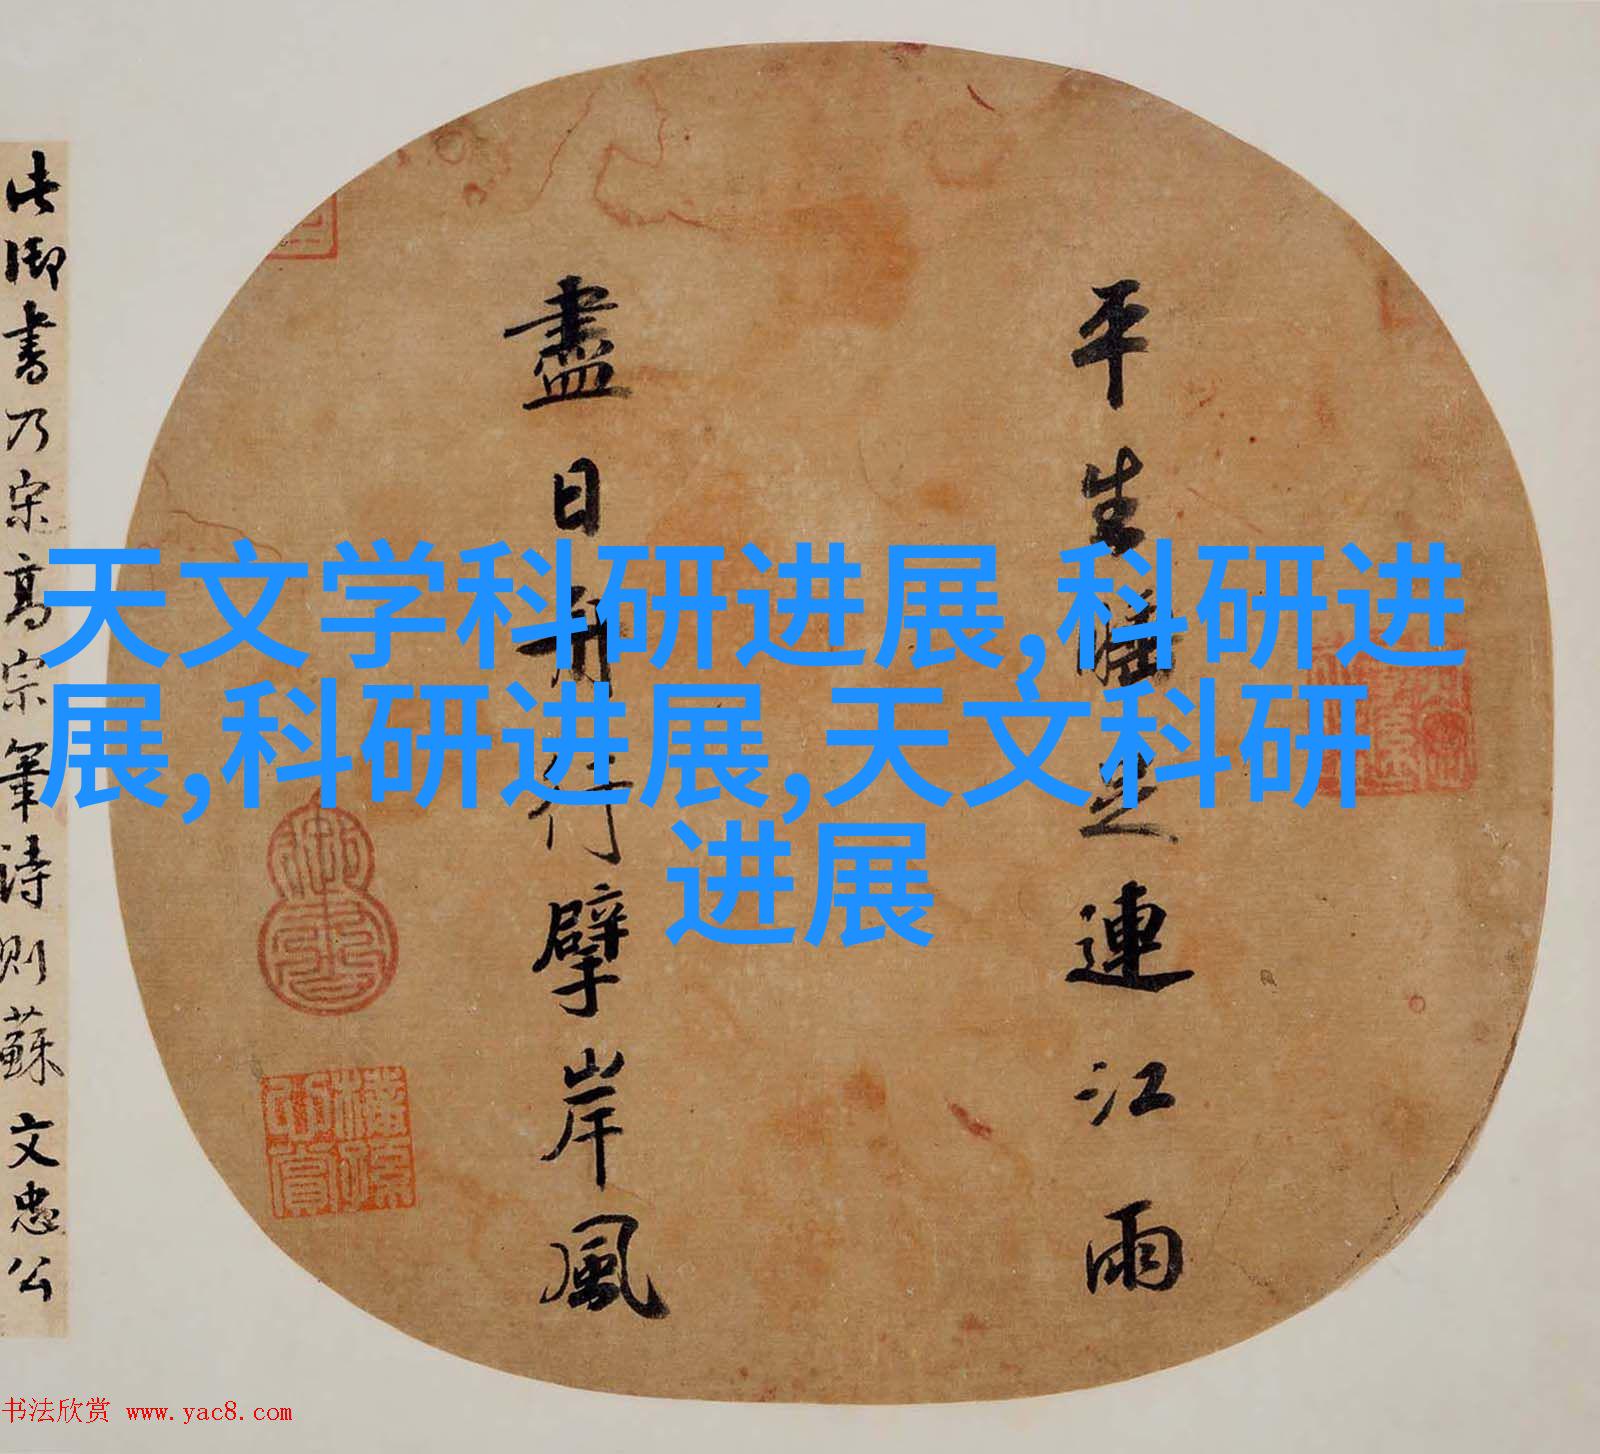 天文学科研进展,科研进
展,科研进展,天文科研
进展
平生睡足連江雨
盡日舟行擘岸風
此御書乃宋高宗筆詩則蘇文忠公
书法欣赏 www.yac8.com